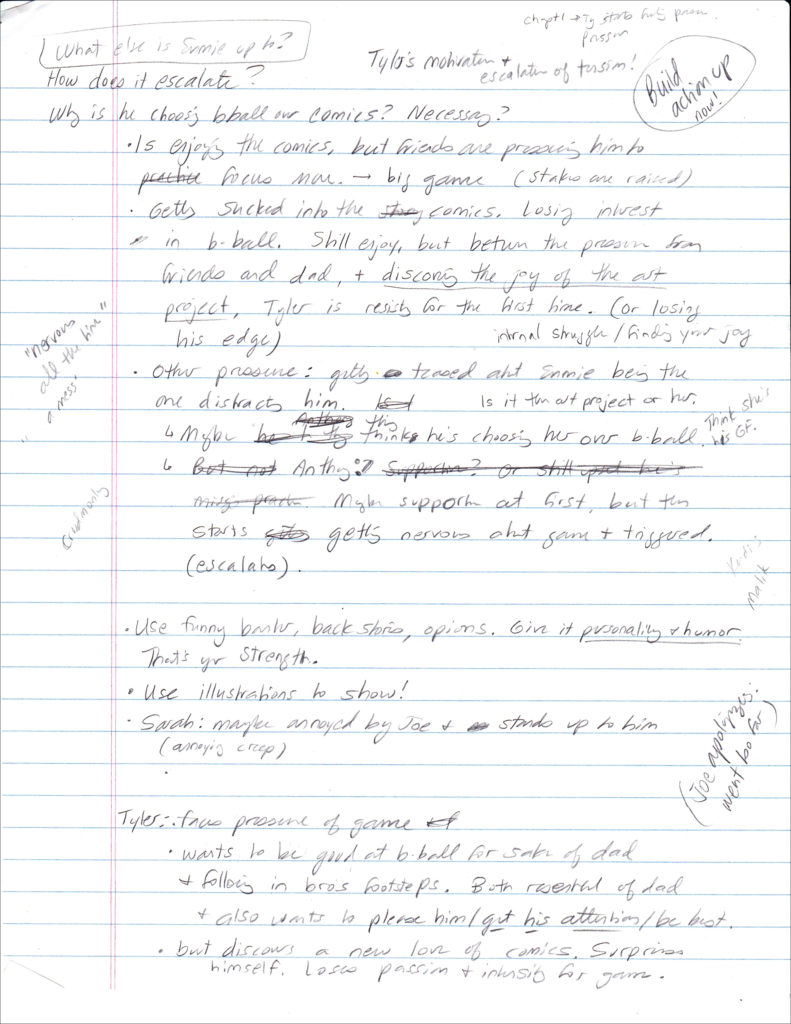 chapt 1 → Ty starts
What else is Emmie up to?
Tyler's motivation +
escalation of tension!
Build
action up
now!
How does it escalate?
Why is he choosing bball over comics? Necessary?
• Is enjoying the comics, but friends are pressuring him to
practice focus more. → big game (stakes are raised)
• Getting sucked into the story comics. Losing interest
in b-ball. Still enjoy, but between the pressure from
friends and dad, + discovering the joy of the art
project, Tyler is resisting for the first time. (or losing
his edge)
internal struggle / finding your joy
"nervous
all the time"
"a mess"
• Other pressure: getting teased abt Emmie being the
one distracting him. Is it the art project or her.
↳ Maybe Anthony thinks he's choosing her over b-ball.
Think she's
his GF.
↳ But not Anthony? Supportive? Or still upset he's
missing practice. Maybe supportive at first, but then
starts getting nervous abt game + triggered.
(escalates).
Malik
• Use funny banter, back stories, opinions. Give it personality + humor.
That's yr strength.
• Use illustrations to show!
• Sarah: maybe annoyed by Joe + stands up to him
(annoying creep)
(Joe apologizes:
went too far)
Tyler: faces pressure of game
• wants to be good at b-ball for sake of dad
+ following in bro's footsteps. Both resentful of dad
+ also wants to please him/get his attention/be best.
• but discovers a new love of comics. Surprises
himself. Loses passion + intensity for game.